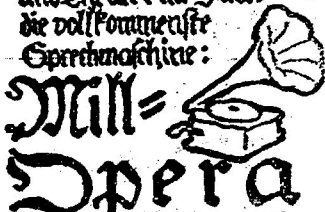 die vollkommenste
Sprechmaschine:
Mill=
Opera